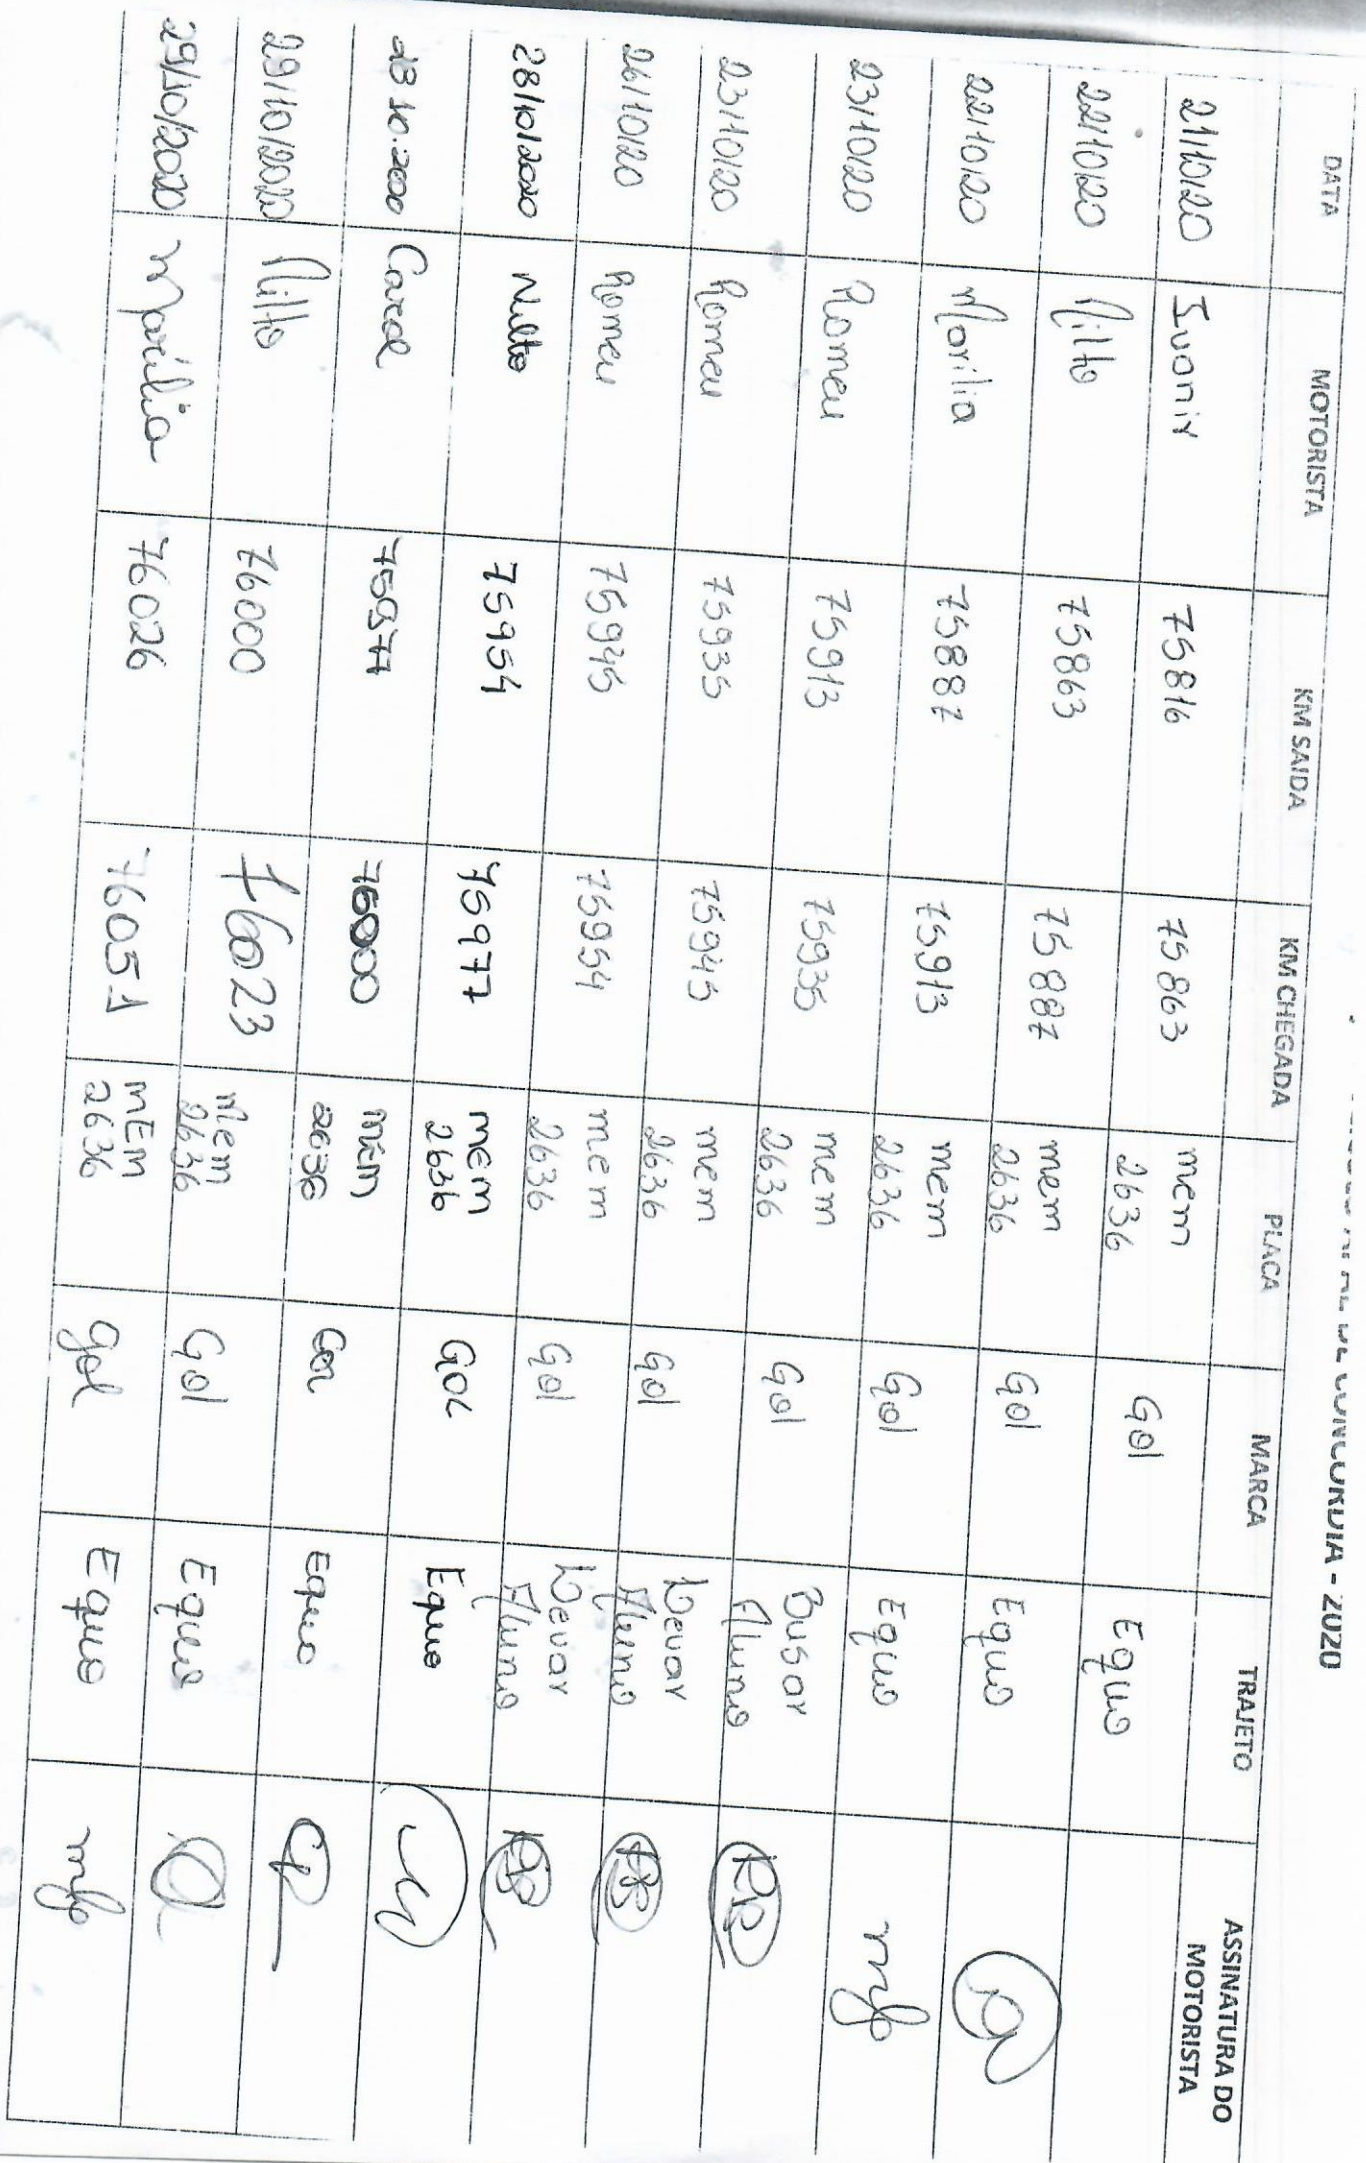 DE CONCORDIA - 2020
DATA MOTORISTA KM SAIDA KM CHEGADA PLACA MARCA TRAJETO ASSINATURA DO MOTORISTA
21/10/20 Ivonir 75816 75863 mem 2636 Gol Equo
22/10/20 Nilto 75863 75887 mem 2636 Gol Equo
22/10/20 Marilia 75887 75913 mem 2636 Gol Equo mfp
23/10/20 Romeu 75913 75935 mem 2636 Gol Busar Aluno
23/10/20 Romeu 75935 75945 mem 2636 Gol Levar Aluno
26/10/20 Romeu 75945 75954 mem 2636 Gol Levar Aluno
28/10/2020 Nilto 75954 75977 mEm 2636 GOL Equo
75977 mEm 2636 Equo
29/10/2020 Nilto 76000 76023 Mem 2636 Gol Equo
29/10/2020 Marilia 76026 76051 mEm 2636 gol Equo mfp